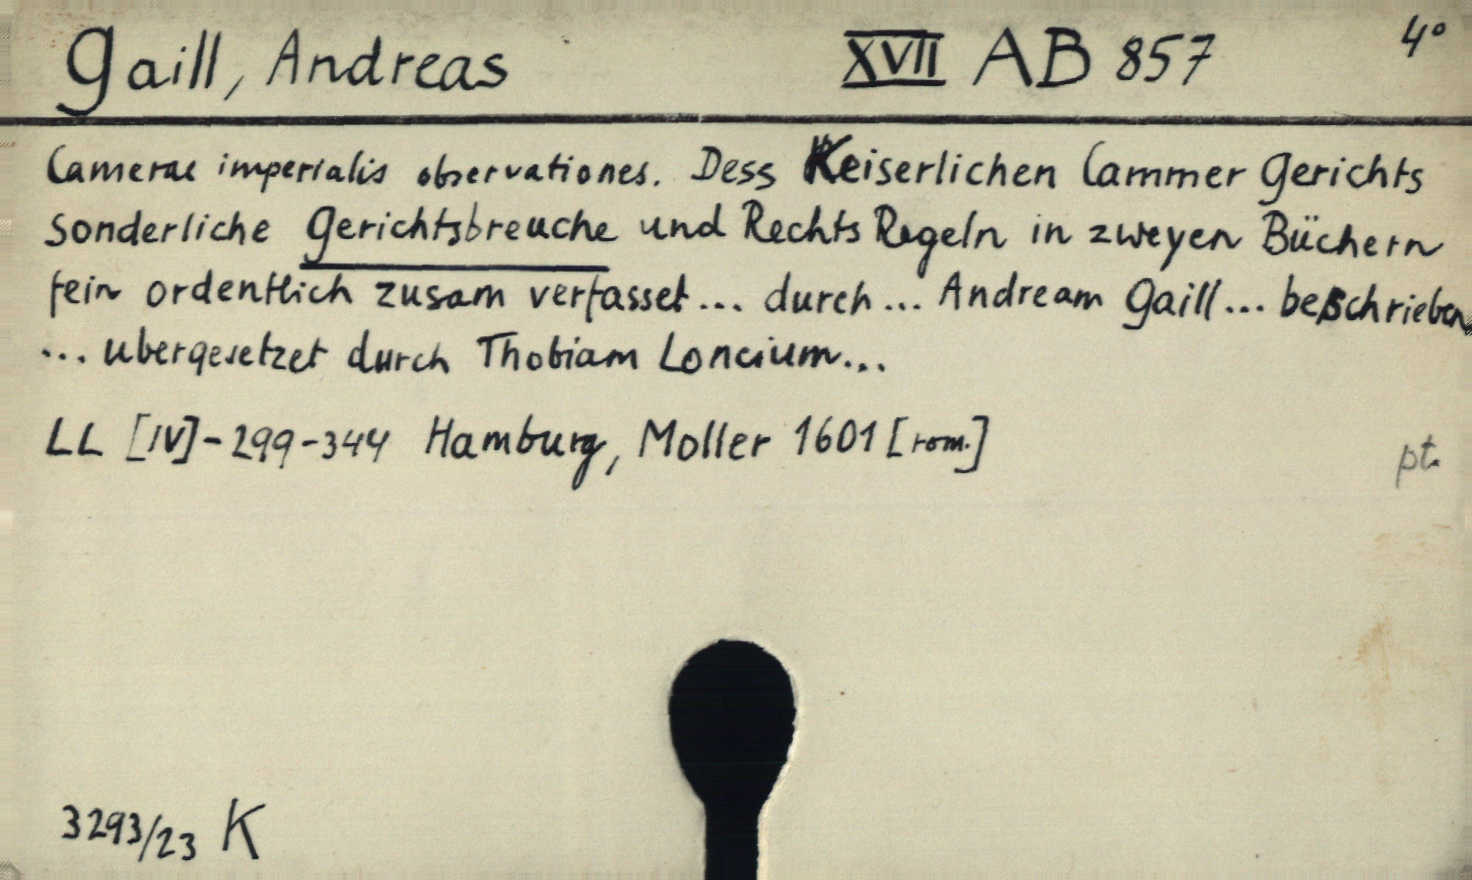 Gaill, Andreas XVII AB 857 4°
Camerae imperialis observationes. Dess Keiserlichen Cammer Gerichts
sonderliche Gerichtsbreuche und Rechts Regeln in zweyen Büchern
fein ordentlich zusam verfasset... durch... Andream Gaill... beschrieben
... ubergesetzet durch Thobiam Loncium...
LL [IV]-299-344 Hamburg, Moller 1601 [rom.]
pt.
3293/23 K